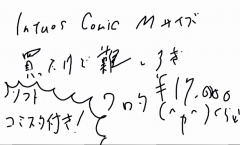 Intuos Comic Mサイズ
買ったけど難しすぎ
ソフト
コミスタ付き!
¥17,000
(^p^)ぐらい